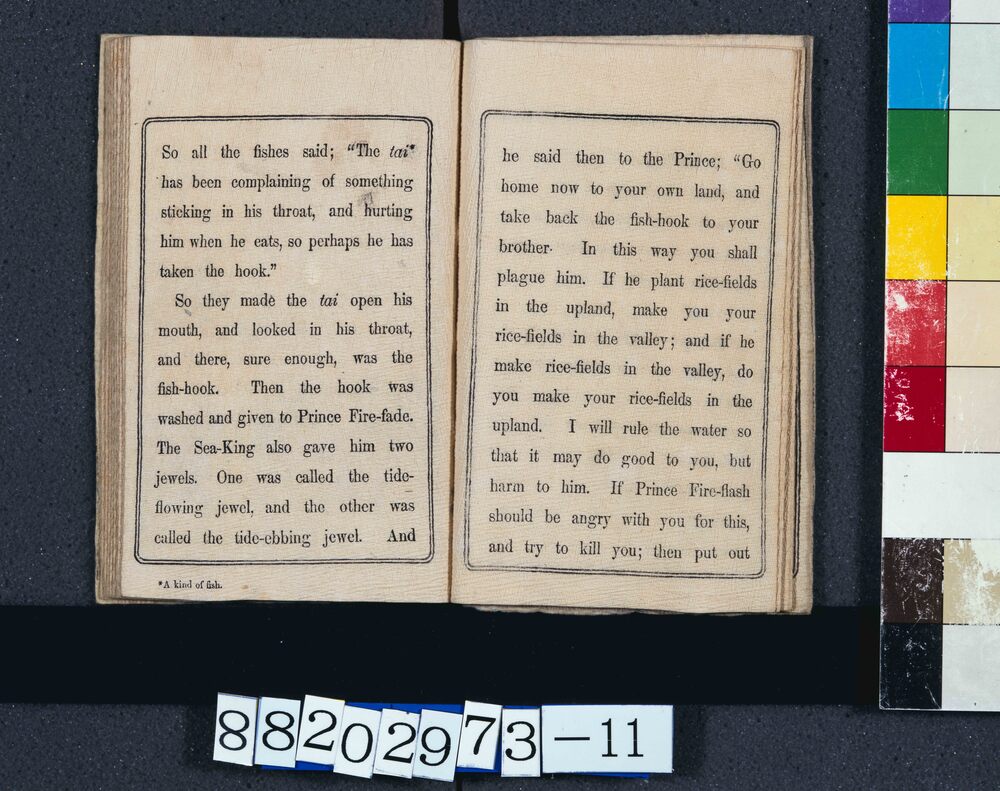 So all the fishes said; “The tai*
has been complaining of something
sticking in his throat, and hurting
him when he eats, so perhaps he has
taken the hook.”
So they made the tai open his
mouth, and looked in his throat,
and there, sure enough, was the
fish-hook. Then the hook was
washed and given to Prince Fire-fade.
The Sea-King also gave him two
jewels. One was called the tide-
flowing jewel, and the other was
called the tide-ebbing jewel. And
*A kind of fish.
he said then to the Prince; “Go
home now to your own land, and
take back the fish-hook to your
brother. In this way you shall
plague him. If he plant rice-fields
in the upland, make you your
rice-fields in the valley; and if he
make rice-fields in the valley, do
you make your rice-fields in the
upland. I will rule the water so
that it may do good to you, but
harm to him. If Prince Fire-flash
should be angry with you for this,
and try to kill you; then put out
88202973-11